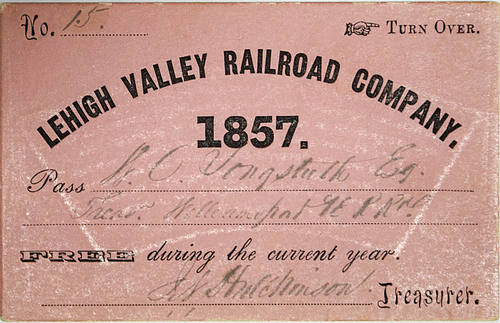 No. 15. TURN OVER.
LEHIGH VALLEY RAILROAD COMPANY.
1857.
Pass Esq.
Treas. Williamsport
FREE during the current year.
Hutchinson Treasurer.